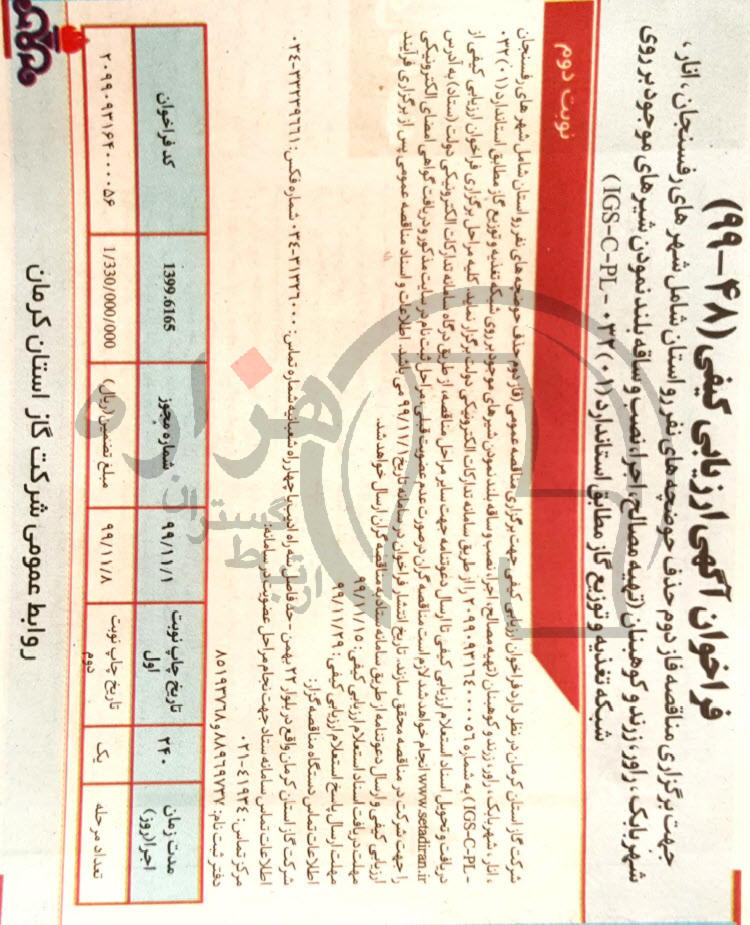 فراخوان آگهی ارزیابی کیفی (۴۸-۹۹)
جهت برگزاری مناقصه فاز دوم حذف حوضچه های نفررو استان شامل شهر های رفسنجان ، انار ،
شهربابک ، راور، زرند و کوهبنان (تهیه مصالح، اجرا، نصب و ساقه بلند نمودن شیرهای موجود بر روی
شبکه تغذیه و توزیع گاز مطابق استاندارد (۰۱)۰۳۲ - IGS-C-PL)
نوبت دوم
شرکت گاز استان کرمان در نظر دارد فراخوان ارزیابی کیفی جهت برگزاری مناقصه عمومی (فاز دوم حذف حوضچه های نفررو استان شامل شهر های رفسنجان
، انار ، شهربابک ، راور، زرند و کوهبنان (تهیه مصالح، اجرا، نصب و ساقه بلند نمودن شیرهای موجود بر روی شبکه تغذیه و توزیع گاز مطابق استاندارد (۰۱)۰۳۲
- IGS-C-PL) به شماره ۲۰۹۹۰۹۳۱۶۴۰۰۰۰۵۶ را از طریق سامانه تدارکات الکترونیکی دولت برگزار نماید. کلیه مراحل برگزاری فراخوان ارزیابی کیفی از
دریافت و تحویل اسناد استعلام ارزیابی کیفی تا ارسال دعوتنامه جهت سایر مراحل مناقصه، از طریق درگاه سامانه تدارکات الکترونیکی دولت (ستاد) به آدرس
www.setadiran.ir انجام خواهد شد لازم است مناقصه گران درصورت عدم عضویت قبلی، مراحل ثبت نام در سایت مذکور و دریافت گواهی امضای الکترونیکی
را جهت شرکت در مناقصه محقق سازند. تاریخ انتشار فراخوان در سامانه تاریخ ۹۹/۱۱/۱ می باشد. اطلاعات و اسناد مناقصه عمومی پس از برگزاری فرآیند
ارزیابی کیفی و ارسال دعوتنامه از طریق سامانه ستاد به مناقصه گران ارسال خواهد شد.
مهلت دریافت اسناد استعلام ارزیابی کیفی: ۹۹/۱۱/۱۵
مهلت ارسال پاسخ استعلام ارزیابی کیفی: ۹۹/۱۱/۲۹
اطلاعات تماس دستگاه مناقصه گزار:
شرکت گاز استان کرمان واقع در بلوار ۲۲ بهمن - حد فاصل سه راه ادیب با چهار راه شعبانیه شماره تماس: ۳۱۳۲۶۰۰۰-۰۳۴ شماره فکس: ۳۳۲۳۹۶۶۱-۰۳۴
اطلاعات تماس سامانه ستاد جهت نجام مراحل عضویت در سامانه:
مرکز تماس: ۴۱۹۳۴-۰۲۱
دفتر ثبت نام: ۸۸۹۶۹۷۳۷ و ۸۵۱۹۳۷۶۸
مدت زمان اجرا(روز) ۲۴۰ تاریخ چاپ نوبت اول ۹۹/۱۱/۱ شماره مجوز 1399.6165 کد فراخوان
تعداد مرحله یک تاریخ چاپ نوبت دوم ۹۹/۱۱/۸ مبلغ تضمین(ریال) 1/330/000/000 ۲۰۹۹۰۹۳۱۶۴۰۰۰۰۵۶
روابط عمومی شرکت گاز استان کرمان
هزاره
ارتباط
گستران